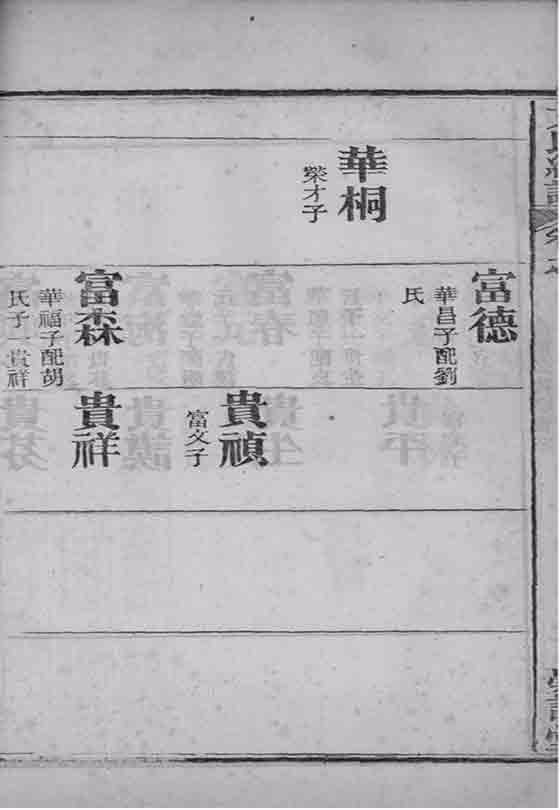 華桐
榮才子
富德
華昌子配劉
氏
富森
華福子配胡
氏子一貴祥
貴禎
富文子
貴祥